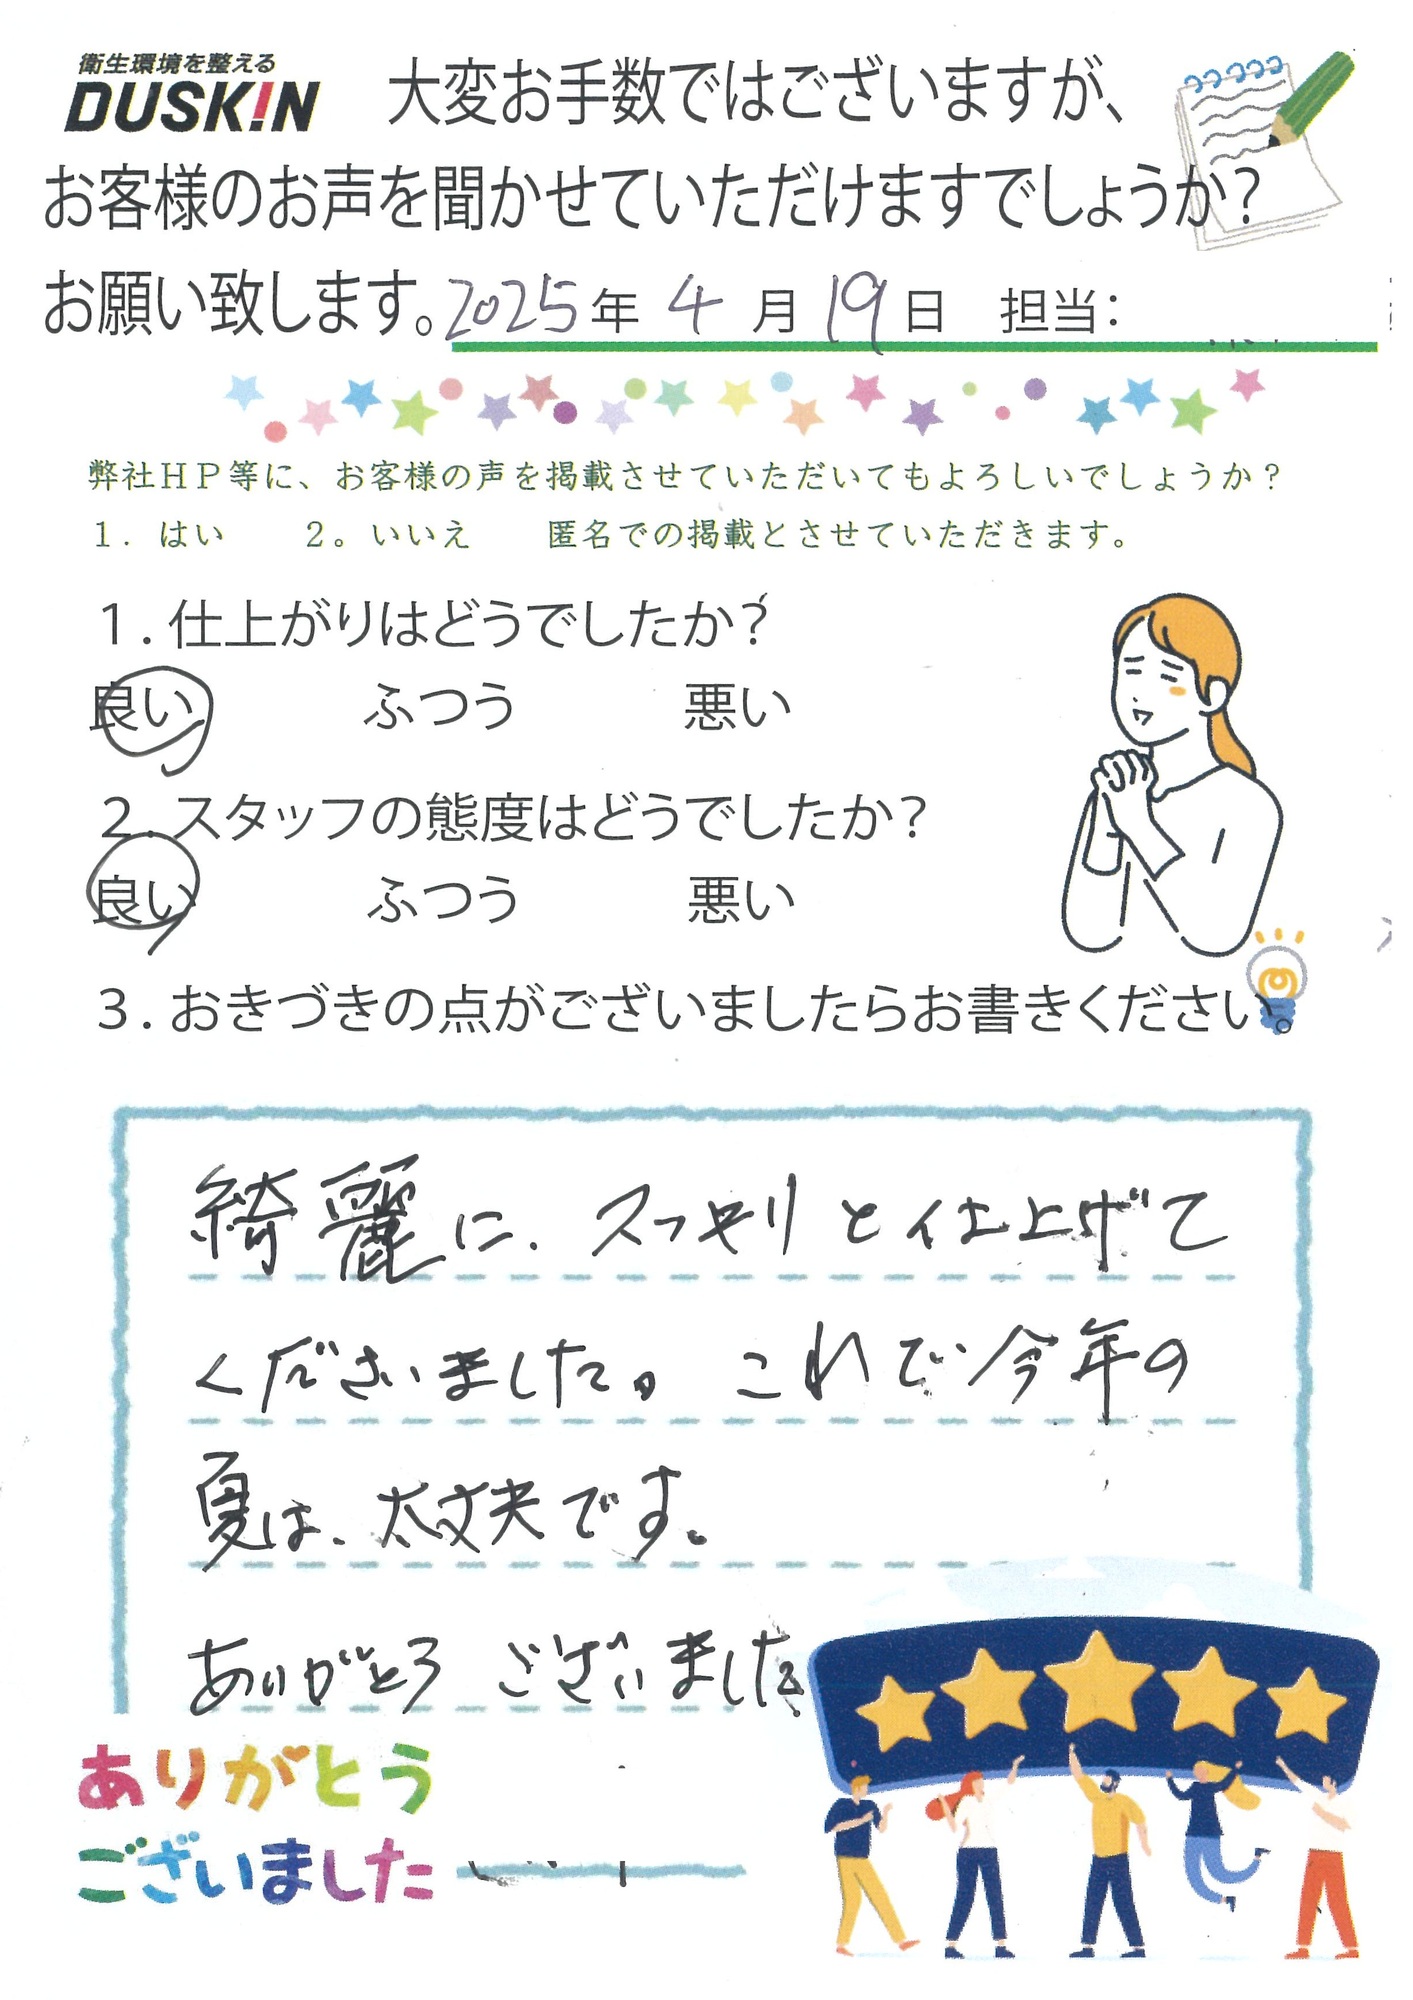 衛生環境を整える
DUSKIN
大変お手数ではございますが、
お客様のお声を聞かせていただけますでしょうか？
お願い致します。2025年 4 月 19 日 担当：
弊社ＨＰ等に、お客様の声を掲載させていただいてもよろしいでしょうか？
１．はい　２。いいえ　匿名での掲載とさせていただきます。
１．仕上がりはどうでしたか？
良い　ふつう　悪い
２．スタッフの態度はどうでしたか？
良い　ふつう　悪い
３．おきづきの点がございましたらお書きください。
綺麗に、スッキリと仕上げて
くださいました。これで今年の
夏は、大丈夫です。
ありがとう ございました
ありがとう
ございました